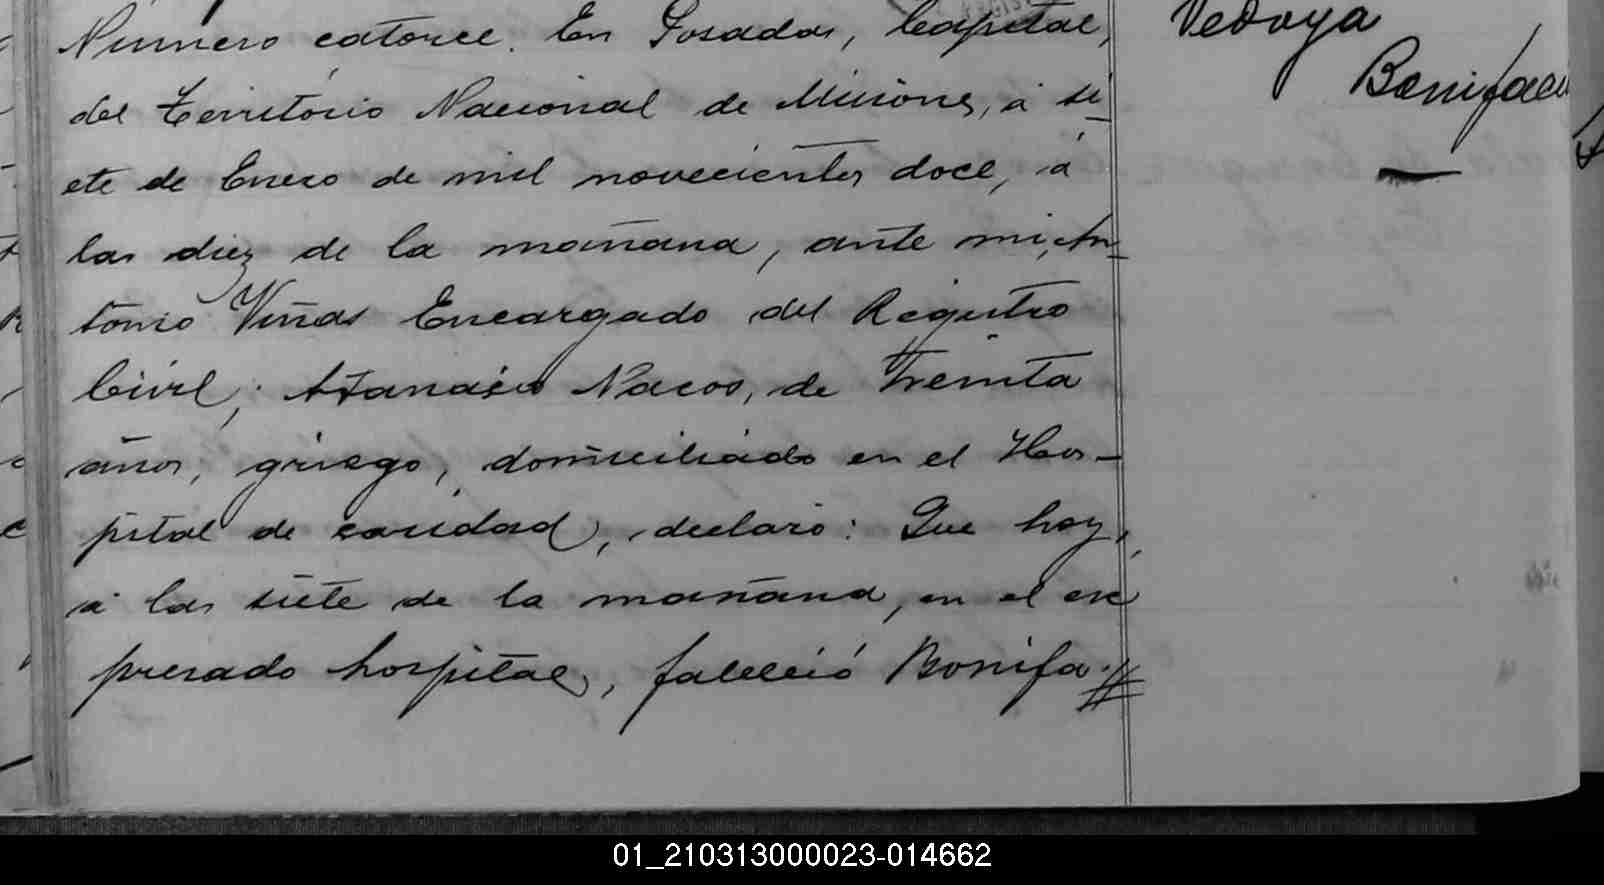 Número catorce. En Posadas, Capital,
del Territorio Nacional de Misiones, á si-
ete de Enero de mil novecientos doce, á
las diez de la mañana, ante mi, An-
tonio Viñas Encargado del Registro
Civil; Atanasio Nacos, de treinta
años, griego, domiciliado en el Hos-
pital de caridad, declaró: Que hoy,
á las siete de la mañana, en el ex
presado hospital, falleció Bonifa-//
Vedoya
Bonifacio
01_210313000023-014662